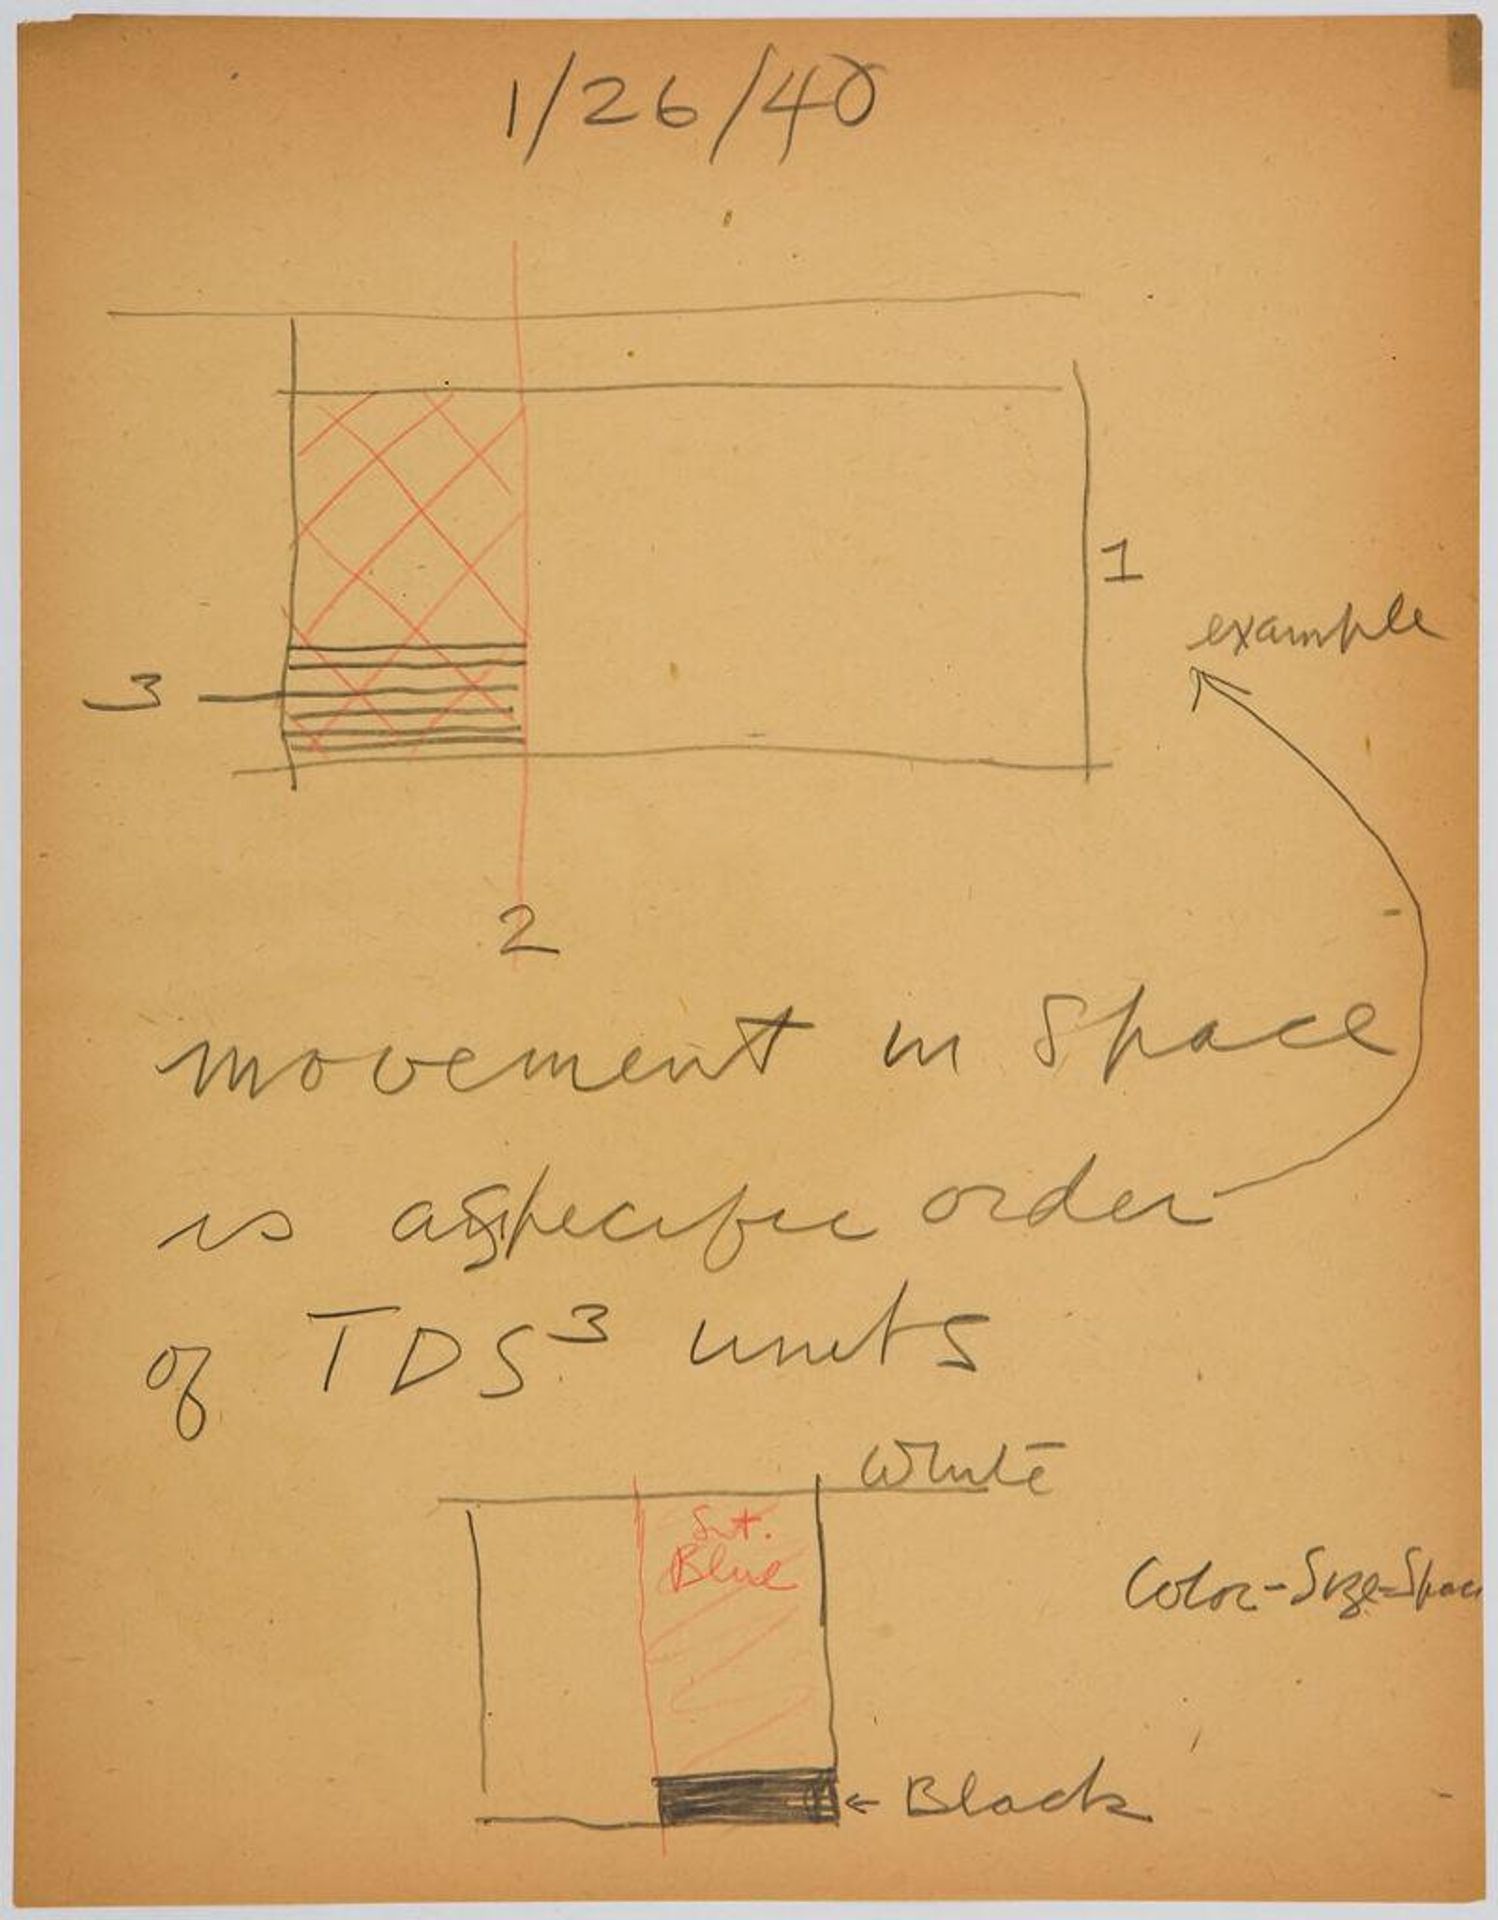 1/26/40
1
example
3
2
movement in Space
is a specific order
of TDS³ units
White
Sat.
Blue
Color-Size-Space
← Black